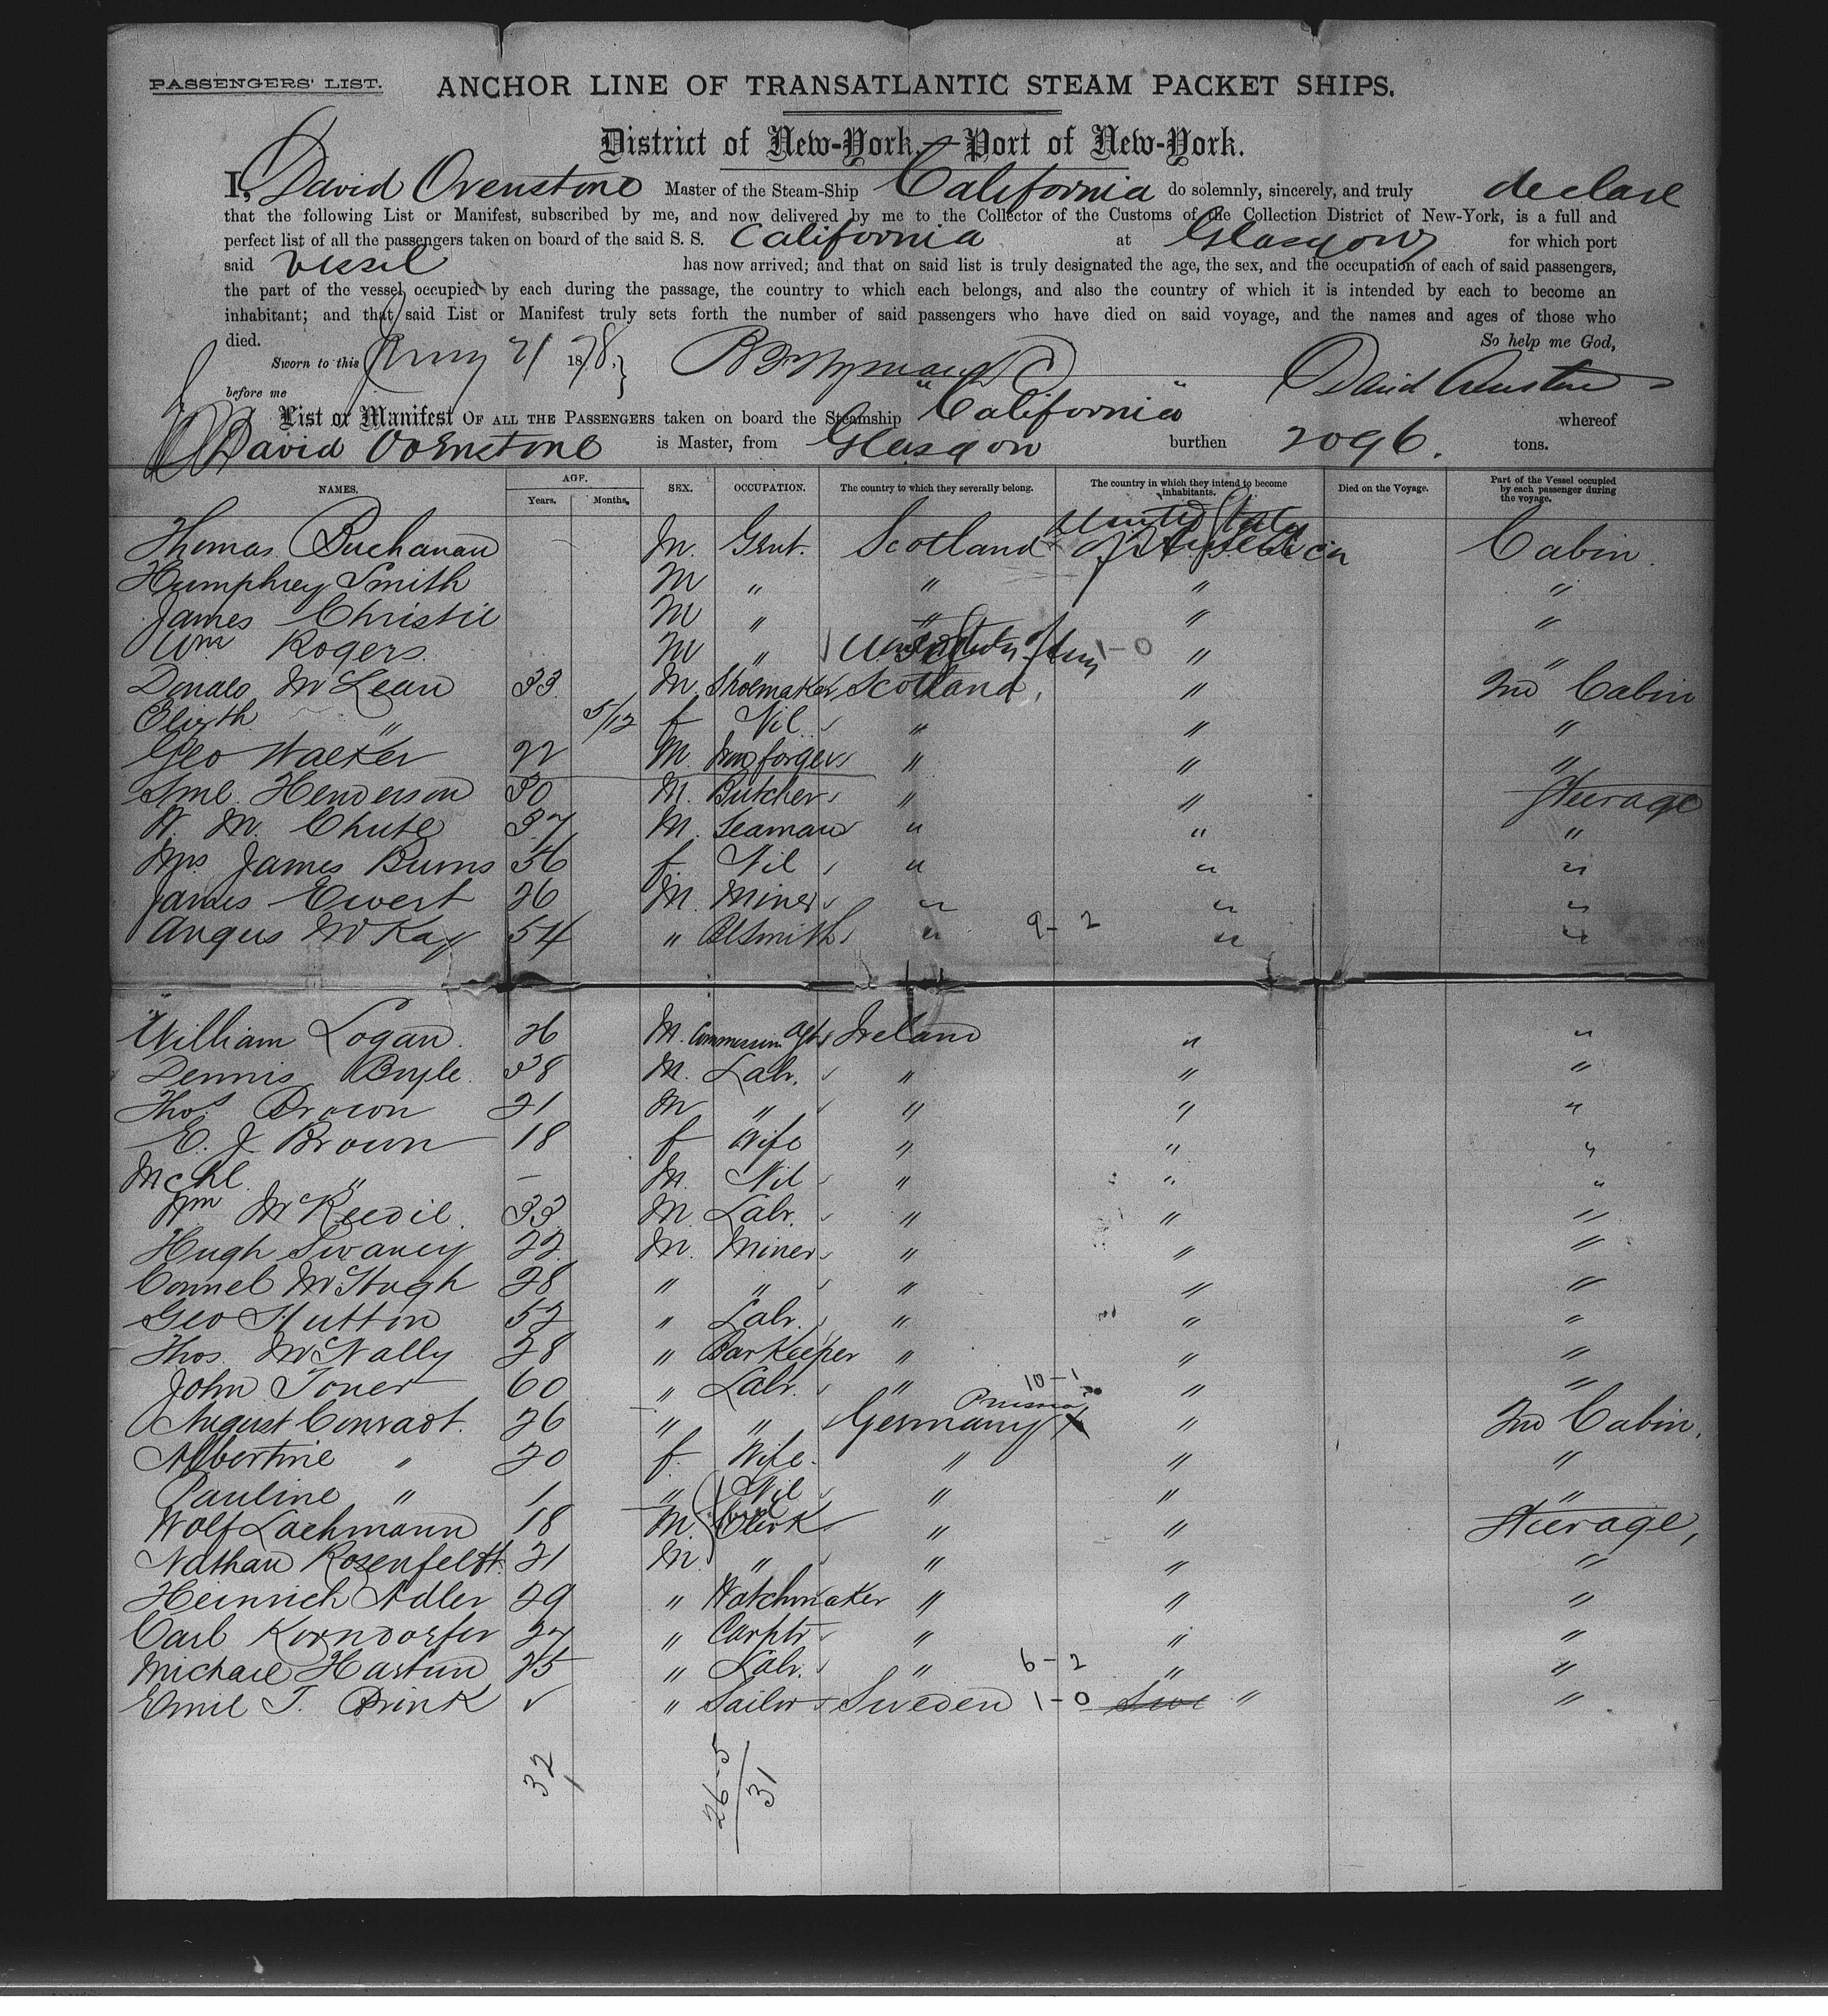 PASSENGERS' LIST.
ANCHOR LINE OF TRANSATLANTIC STEAM PACKET SHIPS.
District of New-York.—Port of New-York.
I, David Ovenstone Master of the Steam-Ship California do solemnly, sincerely, and truly declare
that the following List or Manifest, subscribed by me, and now delivered by me to the Collector of the Customs of the Collection District of New-York, is a full and
perfect list of all the passengers taken on board of the said S. S. California at Glasgow for which port
said vessel has now arrived; and that on said list is truly designated the age, the sex, and the occupation of each of said passengers,
the part of the vessel occupied by each during the passage, the country to which each belongs, and also the country of which it is intended by each to become an
inhabitant; and that said List or Manifest truly sets forth the number of said passengers who have died on said voyage, and the names and ages of those who
died. So help me God,
Sworn to this 21 1878. David Ovenstone
before me
List or Manifest OF ALL THE PASSENGERS taken on board the Steamship "California" whereof
David Ovenstone is Master, from Glasgow burthen 2096. tons.
NAMES. AGE. Years. Months. SEX. OCCUPATION. The country to which they severally belong. The country in which they intend to become inhabitants. Died on the Voyage. Part of the Vessel occupied by each passenger during the voyage.
Thomas Buchanan — M. Gent. Scotland United States of America Cabin.
Humphrey Smith M " " " "
James Christie M " " " "
Wm Rogers. M " United States 1-0 " "
Donald McLean 33 M. Shoemaker Scotland, " 2nd Cabin
Elizth " 5/12 f Nil " " "
Geo Walker 22 M. forger " " "
Saml. Henderson 30 M. Butcher " " Steerage
W. M. Chute 37 M. Seaman " " "
Mrs James Burns 56 f. Nil " " "
James Ewert 26 M. Miner " " "
Angus McKay 54 " Blsmith " 9-2 " "
William Logan. 26 M. Commission Agt Ireland " "
Dennis Boyle. 38 M. Labr. " " "
Thos Brown 21 M " " " "
E. J. Brown 18 f Wife " " "
Mchl. " — M. Nil " " "
Wm McKeedie. 33 M. Labr. " " "
Hugh Swaney 22 M. Miner " " "
Connel McHugh 28 " " " " "
Geo Hutton 52 " Labr. " " "
Thos. McNally 28 " Barkeeper " " "
John Toner 60 " Labr. " 10-1 " "
August Conradt. 26 " " Germany Prussia " 2nd Cabin.
Albertine " 20 f. Wife. " " "
Pauline " 1 " Nil " " "
Wolf Lachmann 18 M. Clerk " " Steerage,
Nathan Rosenfeldt. 21 M. " " " "
Heinrich Adler 29 " Watchmaker " " "
Carl Korndorfer 27 " Carptr " " "
Michael Hartun 25 " Labr. " 6-2 " "
Emil T. Brink ✓ " Sailor Sweden 1-0 Swe " "
32
26-5
31